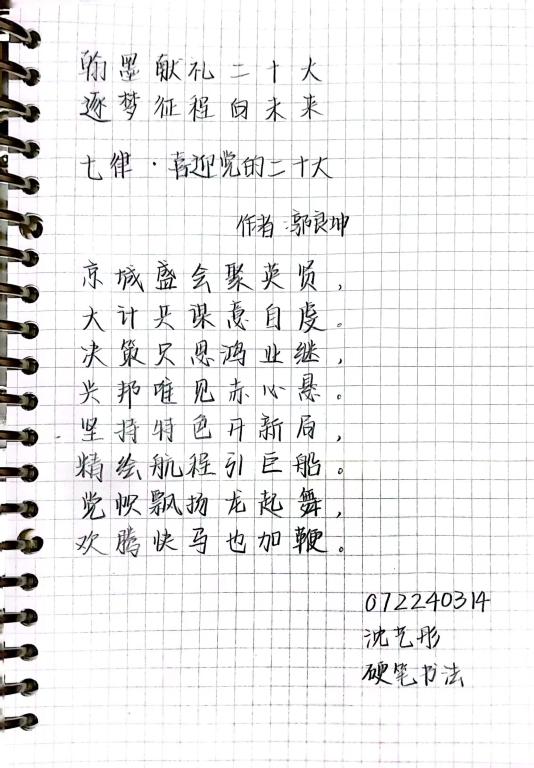 翰墨献礼二十大
逐梦征程向未来
七律·喜迎党的二十大
作者:郭良坤
京城盛会聚英贤,
大计共谋意自虔。
决策只思鸿业继,
兴邦唯见赤心悬。
坚持特色开新局,
精绘航程引巨船。
党帜飘扬龙起舞,
欢腾快马也加鞭。
072240314
沈艺彤
硬笔书法